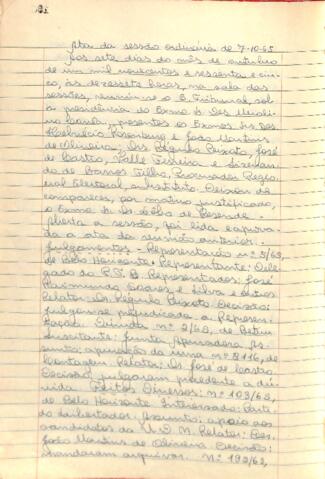 Ata da sessão ordinária de 7-10-65
Aos sete dias do mês de outubro
de um mil novecentos e sessenta e cin-
co, às dezessete horas, na sala das
sessões, reuniu-se o E. Tribunal, sob
a presidência do Exmo Sr. Des.
presentes os Exmos Srs. Des.
e João Martins
de Oliveira; Drs. Régulo Peixoto, José
de Castro, Valle Ferreira e
de Barros Filho, Procurador Regio-
nal Eleitoral, substituto. Deixou de
comparecer, por motivo justificado,
o Exmo Sr. Dr. de Resende.
Aberta a sessão, foi lida e aprova-
da a ata da reunião anterior.
Julgamentos - Representação nº 5/63,
de Belo Horizonte. Representante: Dele-
gado do P.S.D. Representados: José
Raimundo Soares e Silva e outros
Relator: Dr. Régulo Peixoto. Decisão:
julgou-se prejudicada a Represen-
tação. Dúvida nº 9/63, de Betim
Suscitante: Junta Apuradora. As-
sunto: apuração da urna nº 8116, de
Contagem. Relator: Dr. José de Castro
Decisão: julgaram procedente a dú-
vida. Feitos Diversos: nº 103/62,
de Belo Horizonte. Interessado: Parti-
do Libertador. Assunto: apoio aos
candidatos da U.D.N. Relator: Des.
João Martins de Oliveira. Decisão:
mandaram arquivar. Nº 192/62,